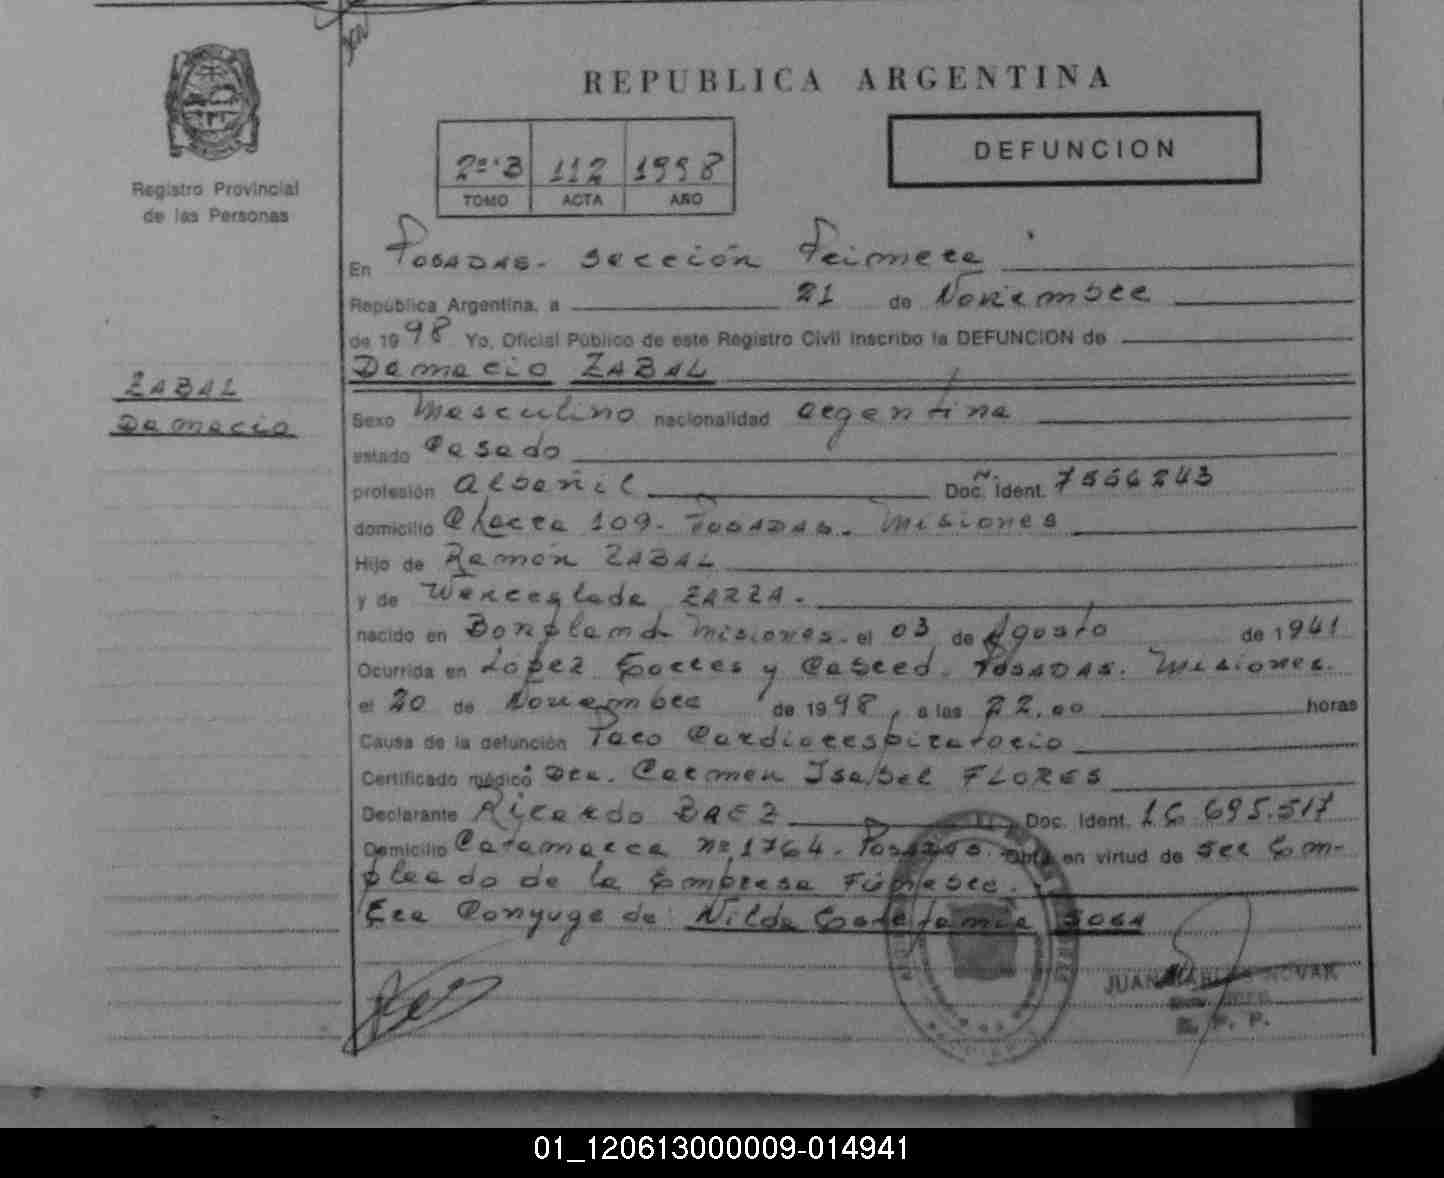 REPUBLICA ARGENTINA
DEFUNCION
2º·B 112 1998
TOMO ACTA AÑO
Registro Provincial
de las Personas
En POSADAS. Sección Primera
República Argentina, a 21 de Noviembre
de 1998 Yo, Oficial Público de este Registro Civil inscribo la DEFUNCION de
Damacio ZABAL
ZABAL
Damacio
Sexo Masculino nacionalidad argentina
estado Casado
profesión albañil Doc. Ident. 7556243
domicilio Chacra 109. POSADAS. Misiones
Hijo de Ramón ZABAL
y de Wenceslada ZARZA.
nacido en Bonpland Misiones. el 03 de Agosto de 1941
Ocurrida en López Torres y Cabred. POSADAS. Misiones.
el 20 de Noviembre de 1998, a las 22,00 horas
Causa de la defunción Paro Cardiorespiratorio
Certificado médico Dra. Carmen Isabel FLORES
Declarante Ricardo BAEZ Doc. Ident. 16.695.517
Domicilio Catamarca nº 1764. Posadas. Obra en virtud de ser Em-
pleado de la Empresa Fúnebre.
Era Conyuge de: Nilda SOSA
JUAN CARLOS NOVAK
R. P. P.
01_120613000009-014941